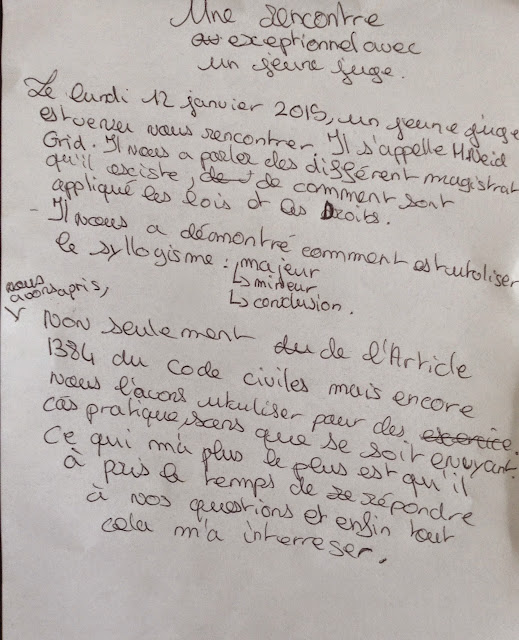 Une rencontre
exceptionnel avec
un jeune juge.
Le lundi 12 janvier 2015, un jeune juge
est venu nous rencontrer. Il s'appelle
Grid. Il nous a parler des différent magistrat
qu'il existe, de comment sont
appliqué les lois et les Droits.
- Il nous a démontré comment est utoliser
le syllogisme : majeur
↳ mineur
↳ conclusion.
nous
avons apris,
Non seulement de l'Article
1384 du Code civiles mais encore
nous l'avons utuliser pour des exercice.
cas pratique, sans que se soit ennuyant.
Ce qui m'a plus le plus est qu'il
à pris le temps de répondre
à nos questions et enfin tout
cela m'a interreser.